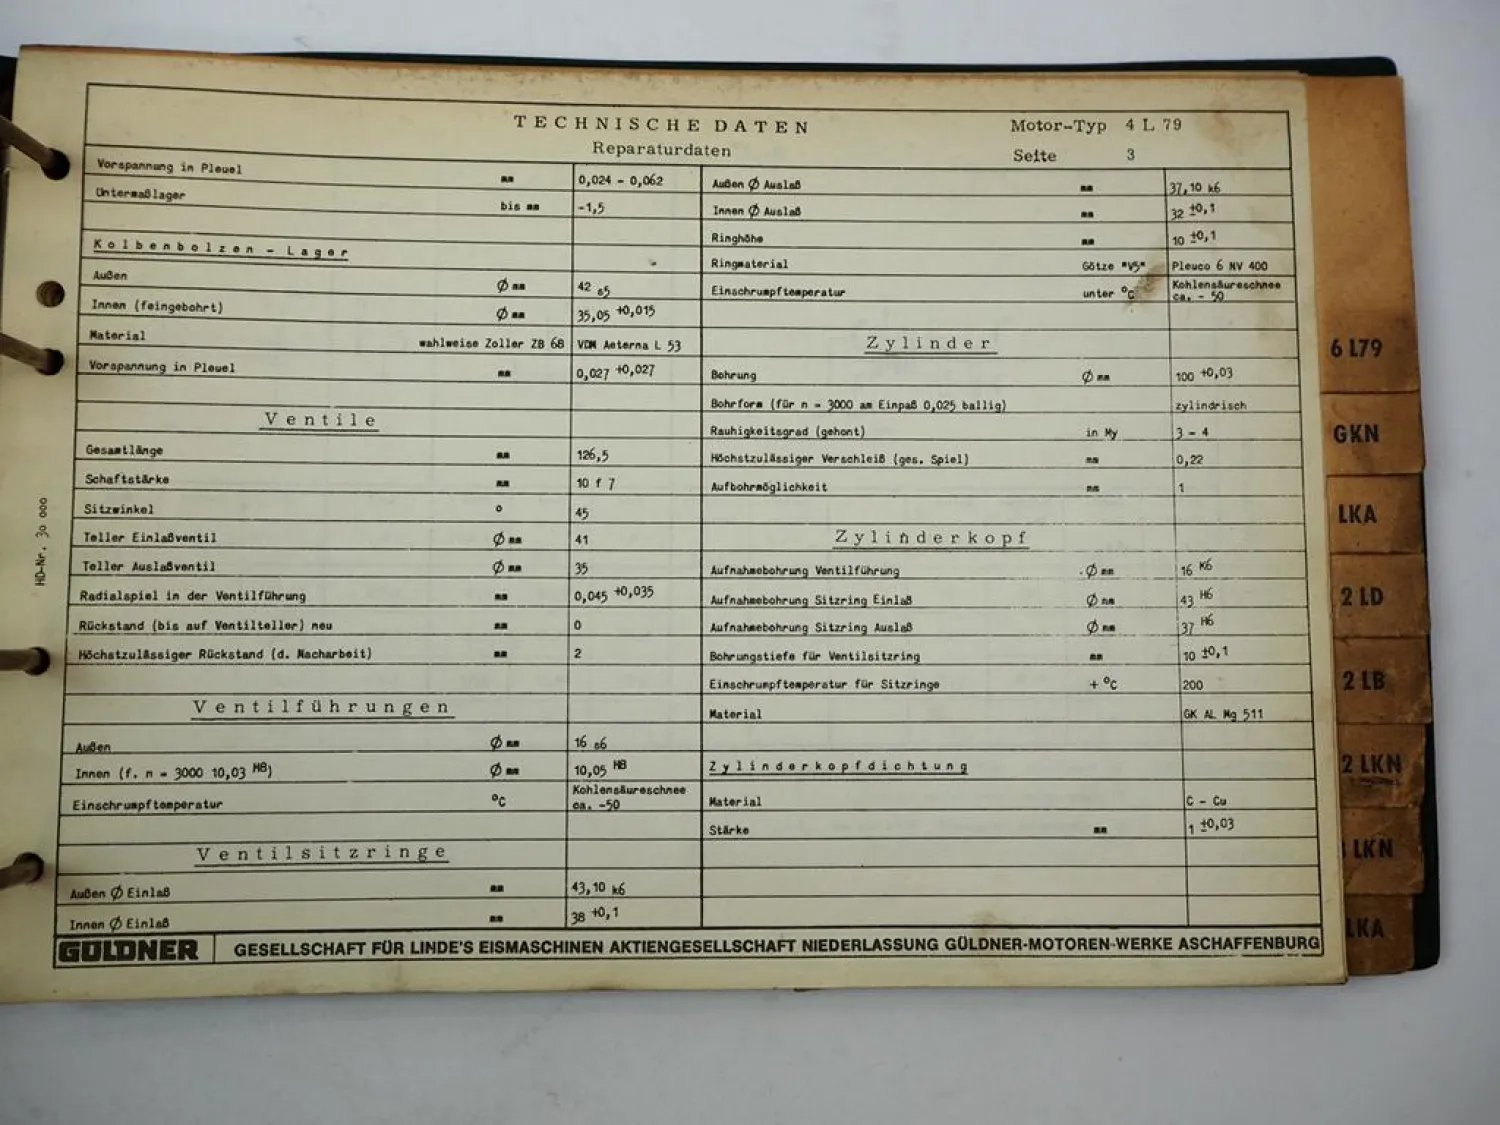 TECHNISCHE DATEN
Reparaturdaten
Motor-Typ 4 L 79
Seite 3
Vorspannung in Pleuel mm 0,024 - 0,062
Untermaßlager bis mm -1,5
Kolbenbolzen - Lager
Außen Ø mm 42 s5
Innen (feingebohrt) Ø mm 35,05 +0,015
Material wahlweise Zoller ZB 68 VDM Aeterna L 53
Vorspannung in Pleuel mm 0,027 +0,027
Ventile
Gesamtlänge mm 126,5
Schaftstärke mm 10 f 7
Sitzwinkel o 45
Teller Einlaßventil Ø mm 41
Teller Auslaßventil Ø mm 35
Radialspiel in der Ventilführung mm 0,045 +0,035
Rückstand (bis auf Ventilteller) neu mm 0
Höchstzulässiger Rückstand (d. Nacharbeit) mm 2
Ventilführungen
Außen Ø mm 16 s6
Innen (f. n = 3000 10,03 H8) Ø mm 10,05 H8
Einschrumpftemperatur °C Kohlensäureschnee
ca. -50
Ventilsitzringe
Außen Ø Einlaß mm 43,10 k6
Innen Ø Einlaß mm 38 +0,1
Außen Ø Auslaß mm 37,10 k6
Innen Ø Auslaß mm 32 ±0,1
Ringhöhe mm 10 ±0,1
Ringmaterial Götze "V5" Pleuco 6 NV 400
Einschrumpftemperatur unter °C Kohlensäureschnee
ca. - 50
Zylinder
Bohrung Ø mm 100 +0,03
Bohrform (für n = 3000 am Einpaß 0,025 ballig) zylindrisch
Rauhigkeitsgrad (gehont) in My 3 - 4
Höchstzulässiger Verschleiß (ges. Spiel) mm 0,22
Aufbohrmöglichkeit mm 1
Zylinderkopf
Aufnahmebohrung Ventilführung Ø mm 16 K6
Aufnahmebohrung Sitzring Einlaß Ø mm 43 H6
Aufnahmebohrung Sitzring Auslaß Ø mm 37 H6
Bohrungstiefe für Ventilsitzring mm 10 ±0,1
Einschrumpftemperatur für Sitzringe + °C 200
Material GK AL Mg 511
Zylinderkopfdichtung
Material C - Cu
Stärke mm 1 ±0,03
GÜLDNER GESELLSCHAFT FÜR LINDE'S EISMASCHINEN AKTIENGESELLSCHAFT NIEDERLASSUNG GÜLDNER-MOTOREN-WERKE ASCHAFFENBURG
HD-Nr. 30 000
6 L79
GKN
LKA
2 LD
2 LB
2 LKN
LKN
LKA